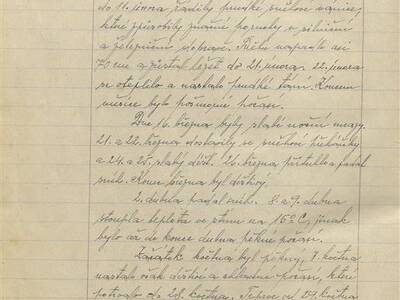 do 11. února řádily prudké sněhové vánice,
které způsobily značné poruchy v silniční
a železniční dopravě. Sněhu napadlo asi
70 cm a zůstal ležet do 21. února. 22. února
se oteplilo a nastalo prudké tání. Koncem
měsíce bylo pošmourné počasí.
Dne 16. března byly slabé noční mrazy.
21. a 22. března dostavily se sněhové přeháňky
a 24. a 25. slabý déšť. 26. března přituhlo a padal
sníh. Konec března byl deštivý.
2. dubna padal sníh. 8. a 9. dubna
stoupla teplota ve stínu na 16°C, jinak
bylo až do konce dubna pěkné počasí.
Začátek května byl pěkný, 7. května
nastalo však deštivé a chladné počasí, které
potrvalo do 28. května. Teprve od 29. května